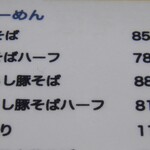 ーめん
そば 85
そばハーフ 78
し豚そば 88
し豚そばハーフ 81
り 1